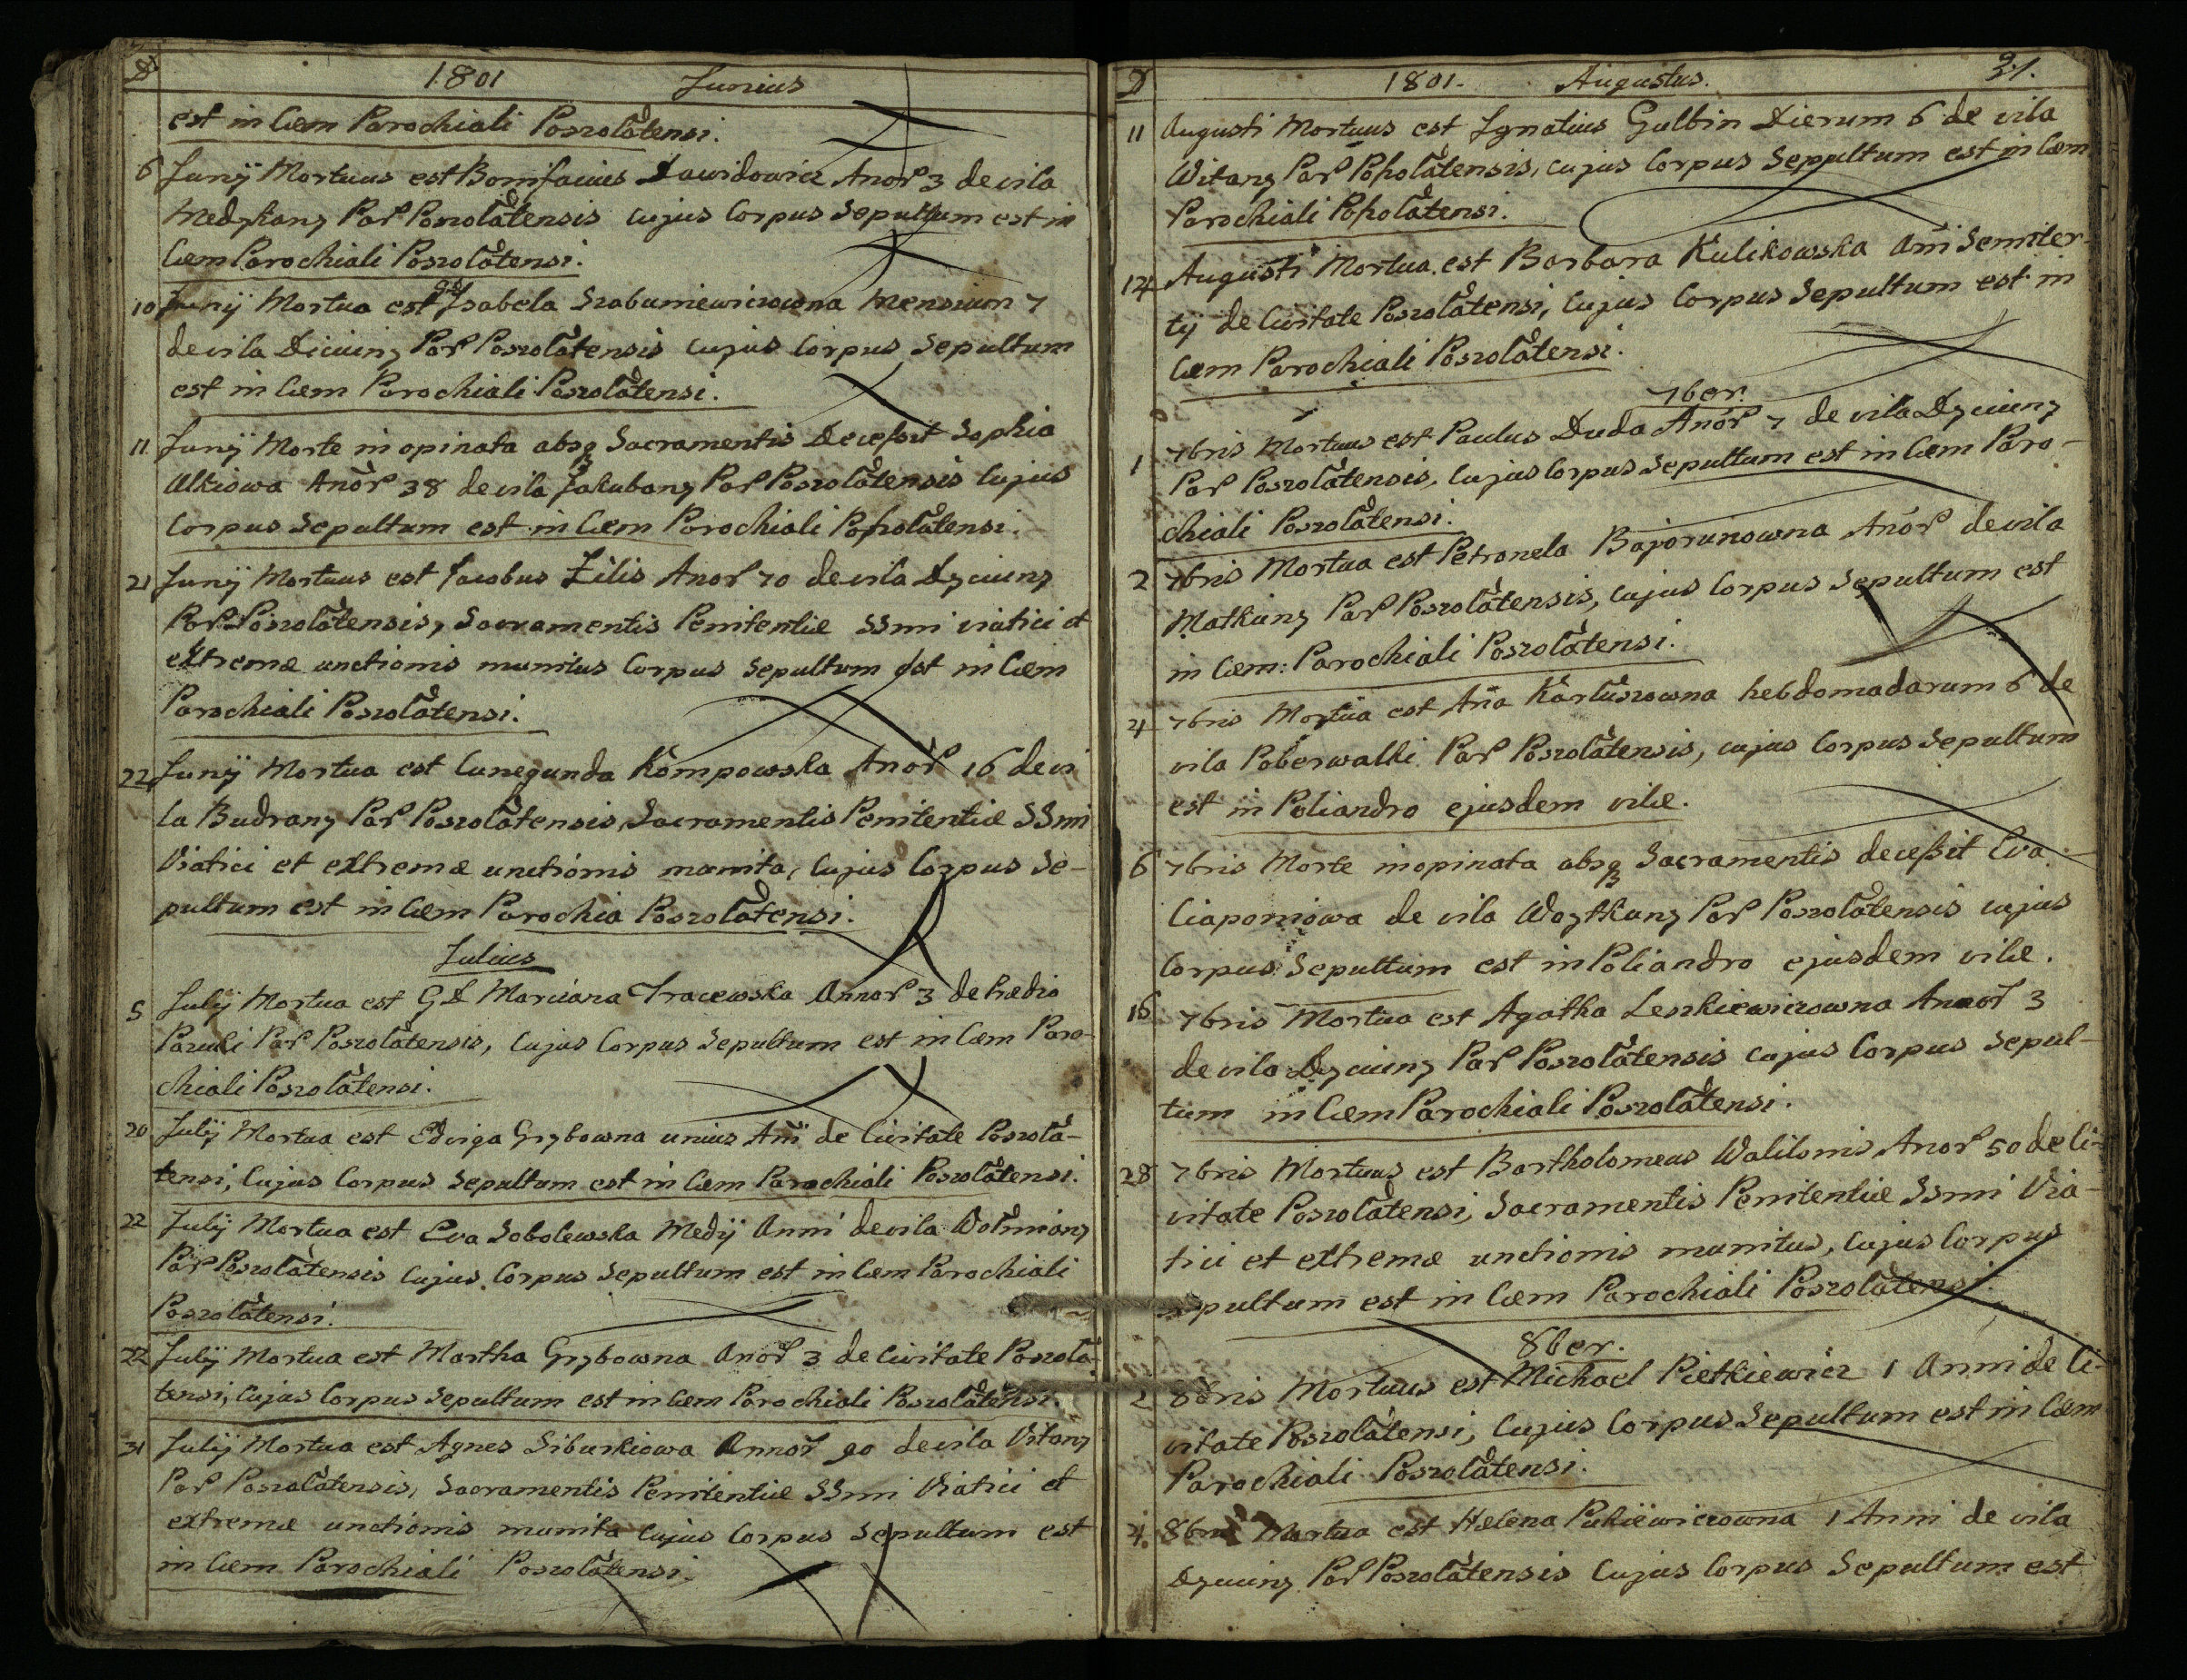 D 1801 Junius
est in Cæm Parochiali Poszolatensi.
6 Junij Mortuus est Bonifacius Dawidowicz Anor 3 de vila
Medykany Par Poszolatensis cujus Corpus Sepultum est in
Cæm Parochiali Poszolatensi.
10 Junij Mortua est Isabela Szabuniewiczowna Mensium 7
de vila Diciuny Par Poszolatensis cujus Corpus Sepultum
est in Cæm Parochiali Poszolatensi.
11 Junij Morte inopinata absq Sacramentis Decessit Sophia
Ulkiowa Anor 38 de vila Jakubany Par Poszolatensis Cujus
Corpus Sepultum est in Cæm Parochiali Posolatensi.
21 Junij Mortuus est Jacobus Zilis Anor 70 de vila Dyciuny
Par Poszolatensis, Sacramentis Penitentiæ SSmi viatici et
extremæ unctionis munitus Corpus Sepultum est in Cæm
Parochiali Poszolatensi.
22 Junij Mortua est Cunegunda Kompowska Anor 16 de vi
la Budrany Par Poszolatensis Sacramentis Penitentiæ SSmi
Viatici et extremæ unctionis munita, Cujus Corpus Se-
pultum est in Cæm Parochia Poszolatensi.
Julius
5 Julij Mortua est GD Marcianna Tracewska Annor 3 de Prædio
Par Poszolatensis, Cujus Corpus Sepultum est in Cæm Paro-
chiali Poszolatensi.
20 Julij Mortua est Edviga Grybowna unius Ani de Civitate Poszola-
tensi, Cujus Corpus Sepultum est in Cæm Parochiali Poszolatensi.
22 Julij Mortua est Eva Sobolewska Medij Anni de vila Dotmiany
Par Poszolatensis Cujus Corpus Sepultum est in Cæm Parochiali
Poszolatensi.
22 Julij Mortua est Martha Grybowna Anor 3 de Civitate Poszola-
tensi, Cujus Corpus Sepultum est in Cæm Parochiali Poszolatensi.
31 Julij Mortua est Agnes Siburkiowa Annor 90 de vila Vitany
Par Poszolatensis, Sacramentis Penitentiæ SSmi Viatici et
extremæ unctionis munita Cujus Corpus Sepultum est
in Cæm Parochiali Poszolatensi.
D 1801. Augustus. 21.
11 Augusti Mortuus est Ignatius Gulbin Dierum 6 de vila
Witany Par Posolatensis, cujus Corpus Sepultum est in Cæm
Parochiali Posolatensi.
14 Augusti Mortua est Barbara Kulikowska Ani Semiter-
tij de Civitate Poszolatensi, Cujus Corpus Sepultum est in
Cæm Parochiali Poszolatensi.
7ber.
1 7bris Mortuus est Paulus Duda Anor 7 de vila Dyciuny
Par Poszolatensis, Cujus Corpus Sepultum est in Cæm Paro-
chiali Poszolatensi.
2 7bris Mortua est Petronela Bajorunowna Anor de vila
Matkuny Par Poszolatensis, cujus Corpus Sepultum est
in Cæm: Parochiali Poszolatensi.
4 7bris Mortua est Ana Kartuszowna hebdomadarum 6 de
vila Poberwalki Par Poszolatensis, cujus Corpus Sepultum
est in Poliandro ejusdem vilæ.
6 7bris Morte inopinata absq Sacramentis decessit Eva
Ciaponiowa de vila Woytkuny Par Poszolatensis cujus
Corpus Sepultum est in Poliandro ejusdem vilæ.
16 7bris Mortua est Agatha Leszkiewiczowna Anor 3
de vila Dyciuny Par Poszolatensis cujus Corpus Sepul-
tum in Cæm Parochiali Poszolatensi.
28 7bris Mortuus est Bartholomeus Walilonis Anor 50 de Ci-
vitate Poszolatensi, Sacramentis Penitentiæ SSmi Via-
tici et extremæ unctionis munitus, Cujus Corpus
sepultum est in Cæm Parochiali Poszolatensi.
8ber.
2 8bris Mortuus est Michael Pietkiewicz 1 Anni de Ci-
vitate Poszolatensi, Cujus Corpus Sepultum est in Cæm
Parochiali Poszolatensi.
4. 8bris Mortua est Helena Pukiewiczowna 1 Anni de vila
Dyciuny Par Poszolatensis Cujus Corpus Sepultum est